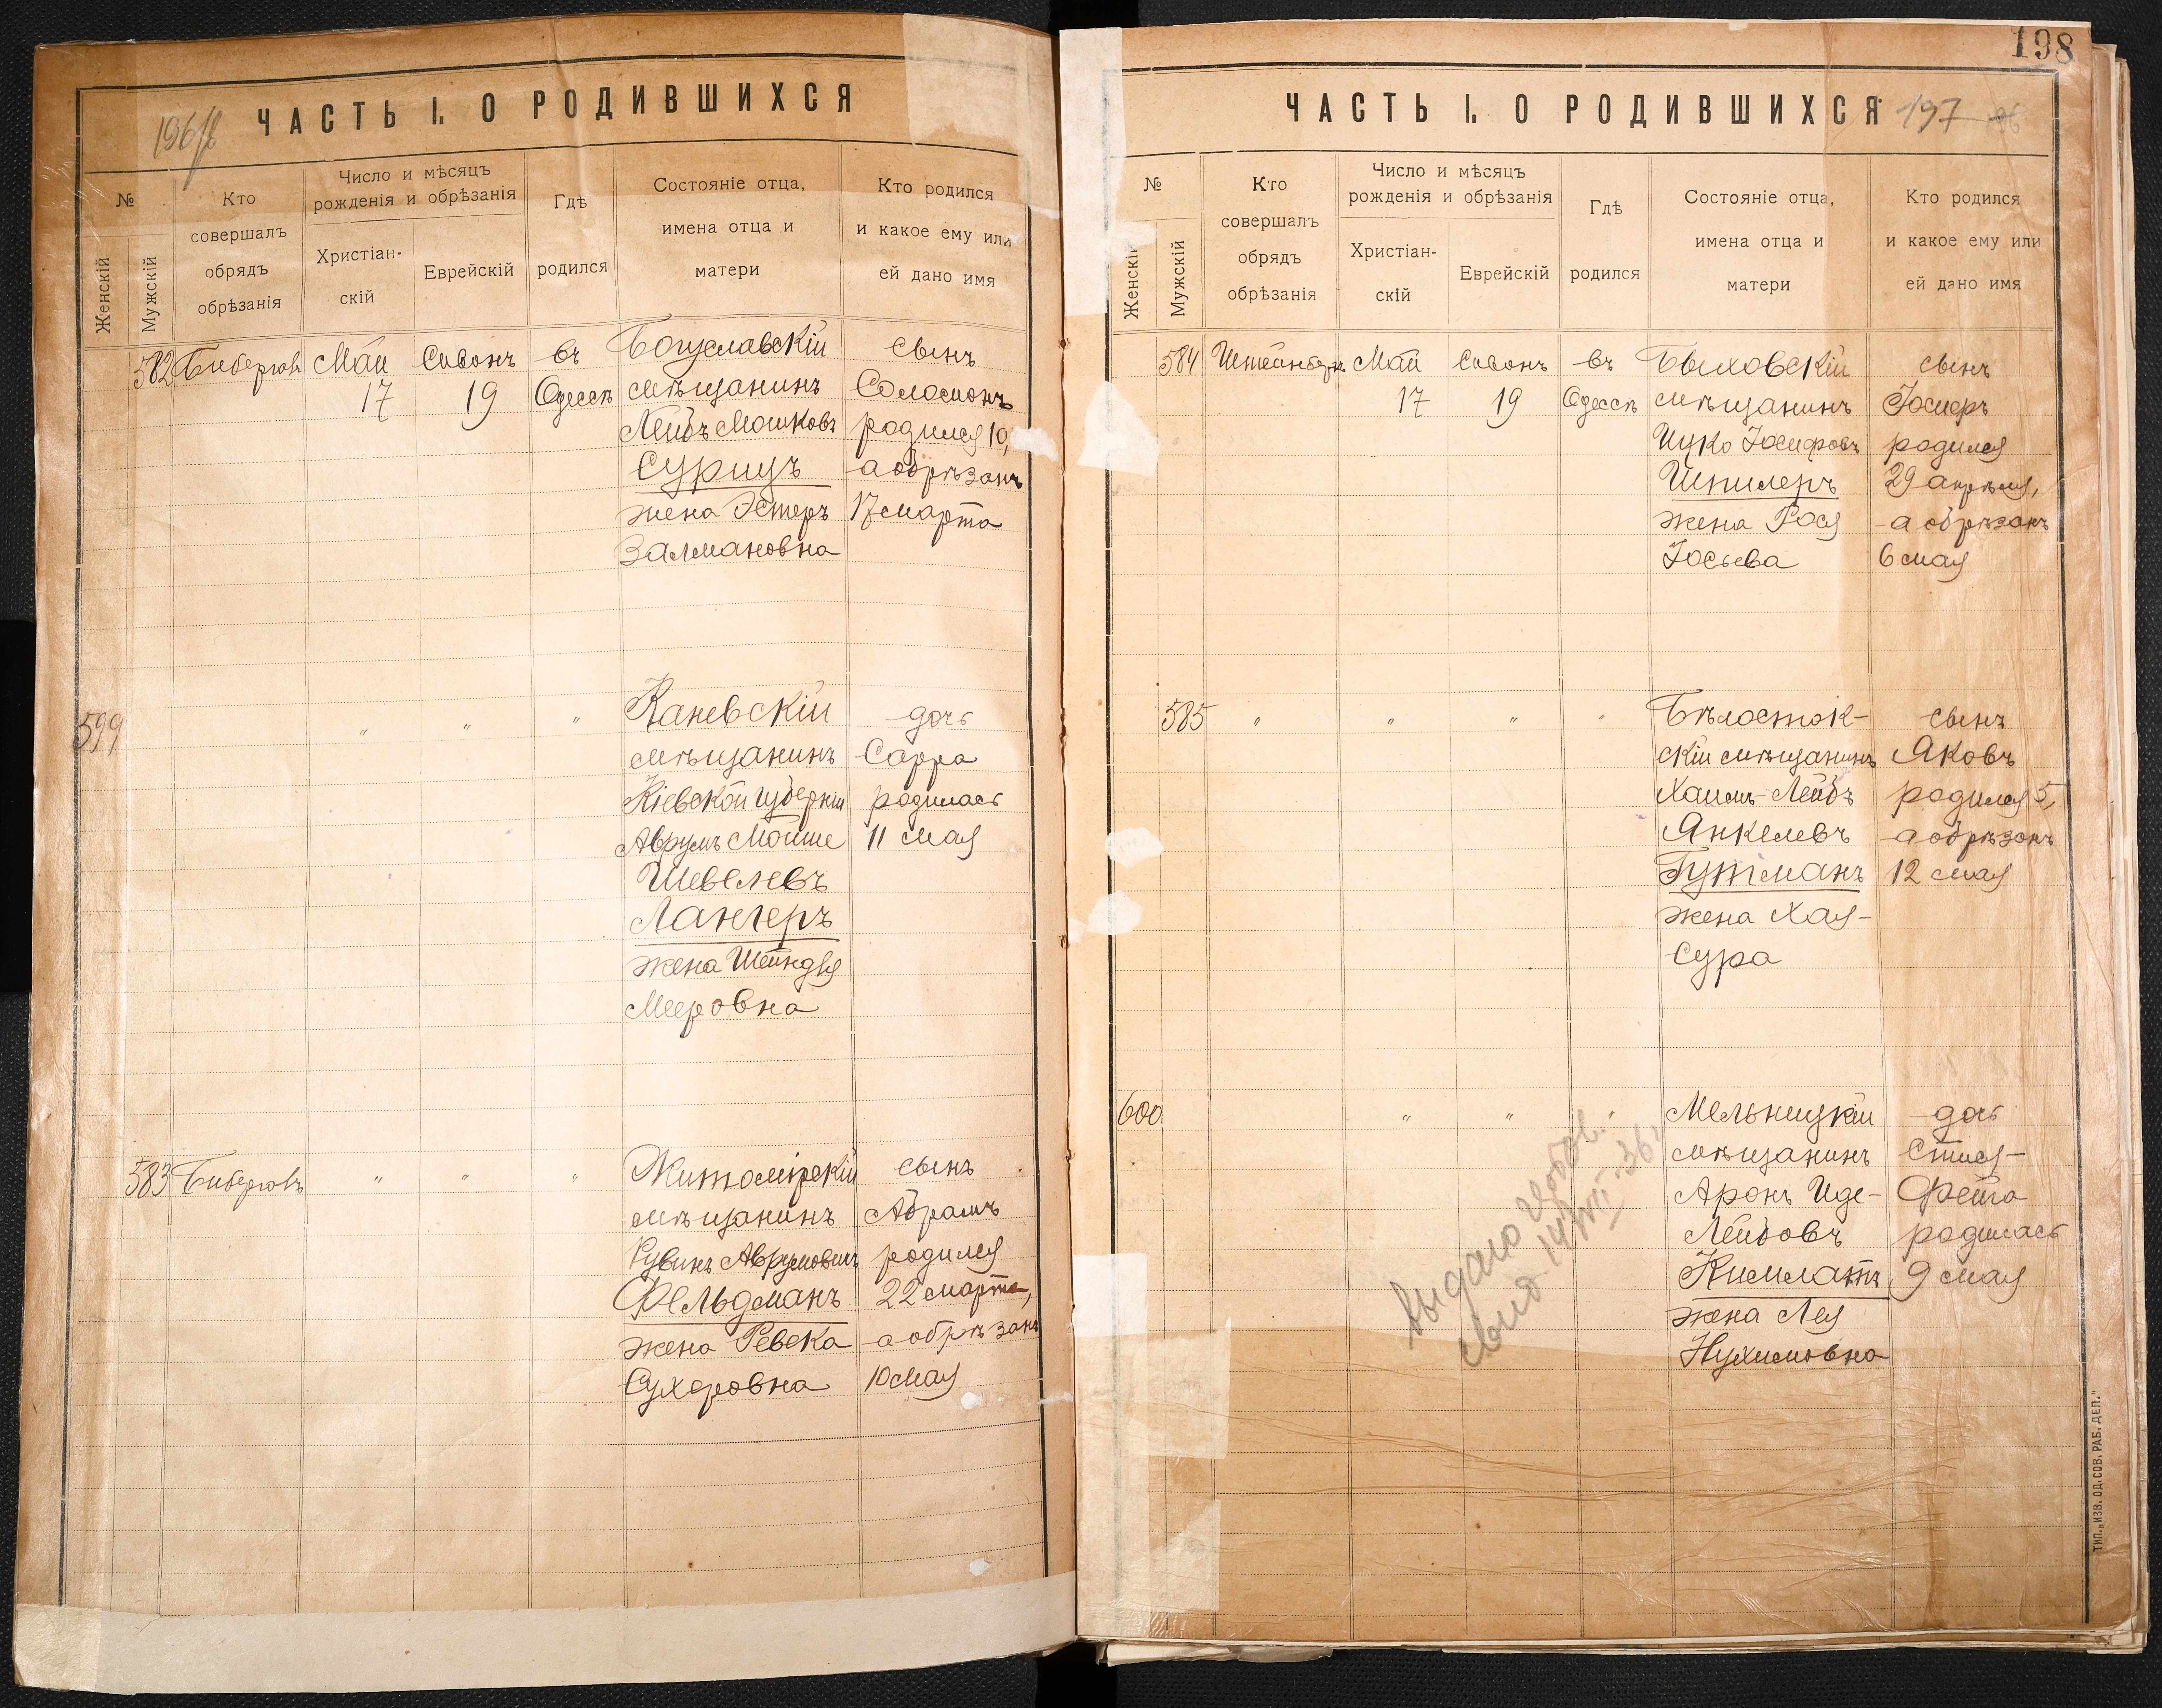 196 об
ЧАСТЬ I. О РОДИВШИХСЯ
№
Женскій
Мужскій
Кто
совершалъ
обрядъ
обрѣзанія
Число и мѣсяцъ
рожденія и обрѣзанія
Христіан-
скій
Еврейскій
Гдѣ
родился
Состояніе отца,
имена отца и
матери
Кто родился
и какое ему или
ей дано имя
582
Май
17
Сивонъ
19
въ
Одессѣ
Богуславскій
мѣщанинъ
Лейбъ Мошковъ
Сурицъ
жена Эстеръ
Залмановна
сынъ
Соломонъ
родился 10,
а обрѣзанъ
17 марта
599
" " "
Каневскій
мѣщанинъ
Кіевской губерніи
Аврумъ Мойше
Шевелевъ
Лангеръ
жена Шейндля
Мееровна
дочь
Сарра
родилась
11 мая
583
" " "
Житомірскій
мѣщанинъ
Рувинъ Аврумовичъ
Фельдманъ
жена Ревека
Сухоровна
сынъ
Абрамъ
родился
22 марта,
а обрѣзанъ
10 мая
198
ЧАСТЬ I. О РОДИВШИХСЯ
197
№
Женскій
Мужскій
Кто
совершалъ
обрядъ
обрѣзанія
Число и мѣсяцъ
рожденія и обрѣзанія
Христіан-
скій
Еврейскій
Гдѣ
родился
Состояніе отца,
имена отца и
матери
Кто родился
и какое ему или
ей дано имя
584
Штейнбергъ
Май
17
Сивонъ
19
въ
Одессѣ
Быховскій
мѣщанинъ
Ицко Іосифовъ
Шпилеръ
жена Рося
Іосьева
сынъ
Іосифъ
родился
29 апрѣля,
а обрѣзанъ
6 мая
585
" " " "
Бѣлосток-
скій мѣщанинъ
Хаимъ-Лейбъ
Янкелевъ
Гутманъ
жена Хая-
Сура
сынъ
Яковъ
родился 5,
а обрѣзанъ
12 мая
600
" " "
Мельницкій
мѣщанинъ
Аронъ Иде-
Лейбовъ
Кимлатъ
жена Лея
Нухимовна
дочь
Фейга
родилась
9 мая
выдано
ТИП. „ИЗВ. ОД. СОВ. РАБ. ДЕП."